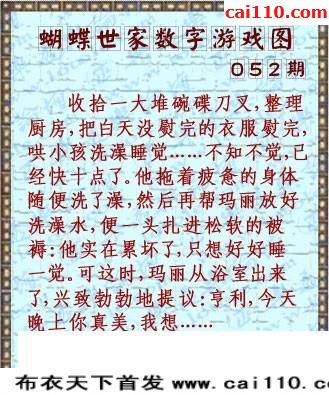 cai110.com
蝴蝶世家数字游戏图
052期
收拾一大堆碗碟刀叉,整理
厨房,把白天没熨完的衣服熨完,
哄小孩洗澡睡觉……不知不觉,已
经快十点了。他拖着疲惫的身体
随便洗了澡,然后再帮玛丽放好
洗澡水,便一头扎进松软的被
褥:他实在累坏了,只想好好睡
一觉。可这时,玛丽从浴室出来
了,兴致勃勃地提议:亨利,今天
晚上你真美,我想……
布衣天下首发 www.cai110.com